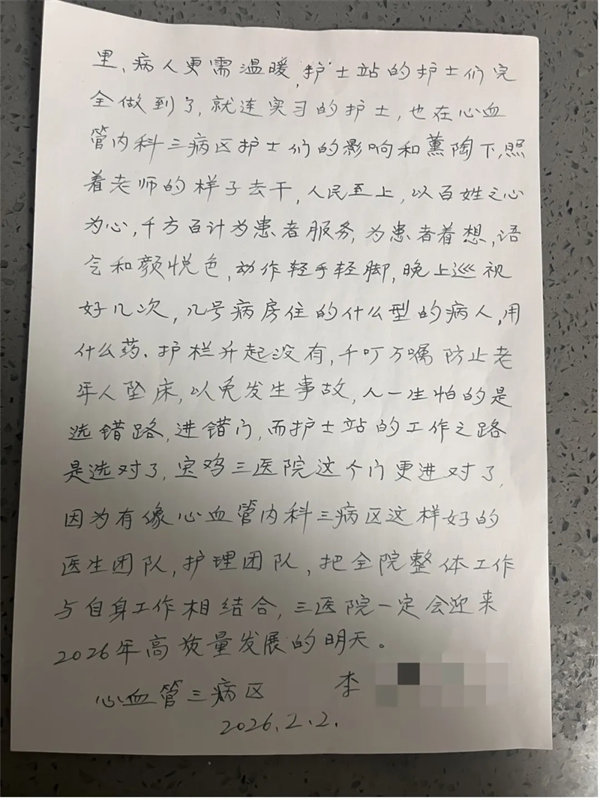 里、病人更需温暖，护士站的护士们完
全做到了，就连实习的护士，也在心血
管内科三病区护士们的影响和薰陶下，照
着老师的样子去干，人民至上，以百姓之心
为心，千方百计为患者服务，为患者着想，语
气和颜悦色，动作轻手轻脚，晚上巡视
好几次，几号病房住的什么型的病人，用
什么药．护栏升起没有，千叮万嘱防止老
年人坠床，以免发生事故，人一生怕的是
选错路，进错门，而护士站的工作之路
是选对了，宝鸡三医院这个门更进对了，
因为有像心血管内科三病区这样好的
医生团队，护理团队，把全院整体工作
与自身工作相结合，三医院一定会迎来
2026年高质量发展的明天。
心血管三病区 李
2026.2.2.